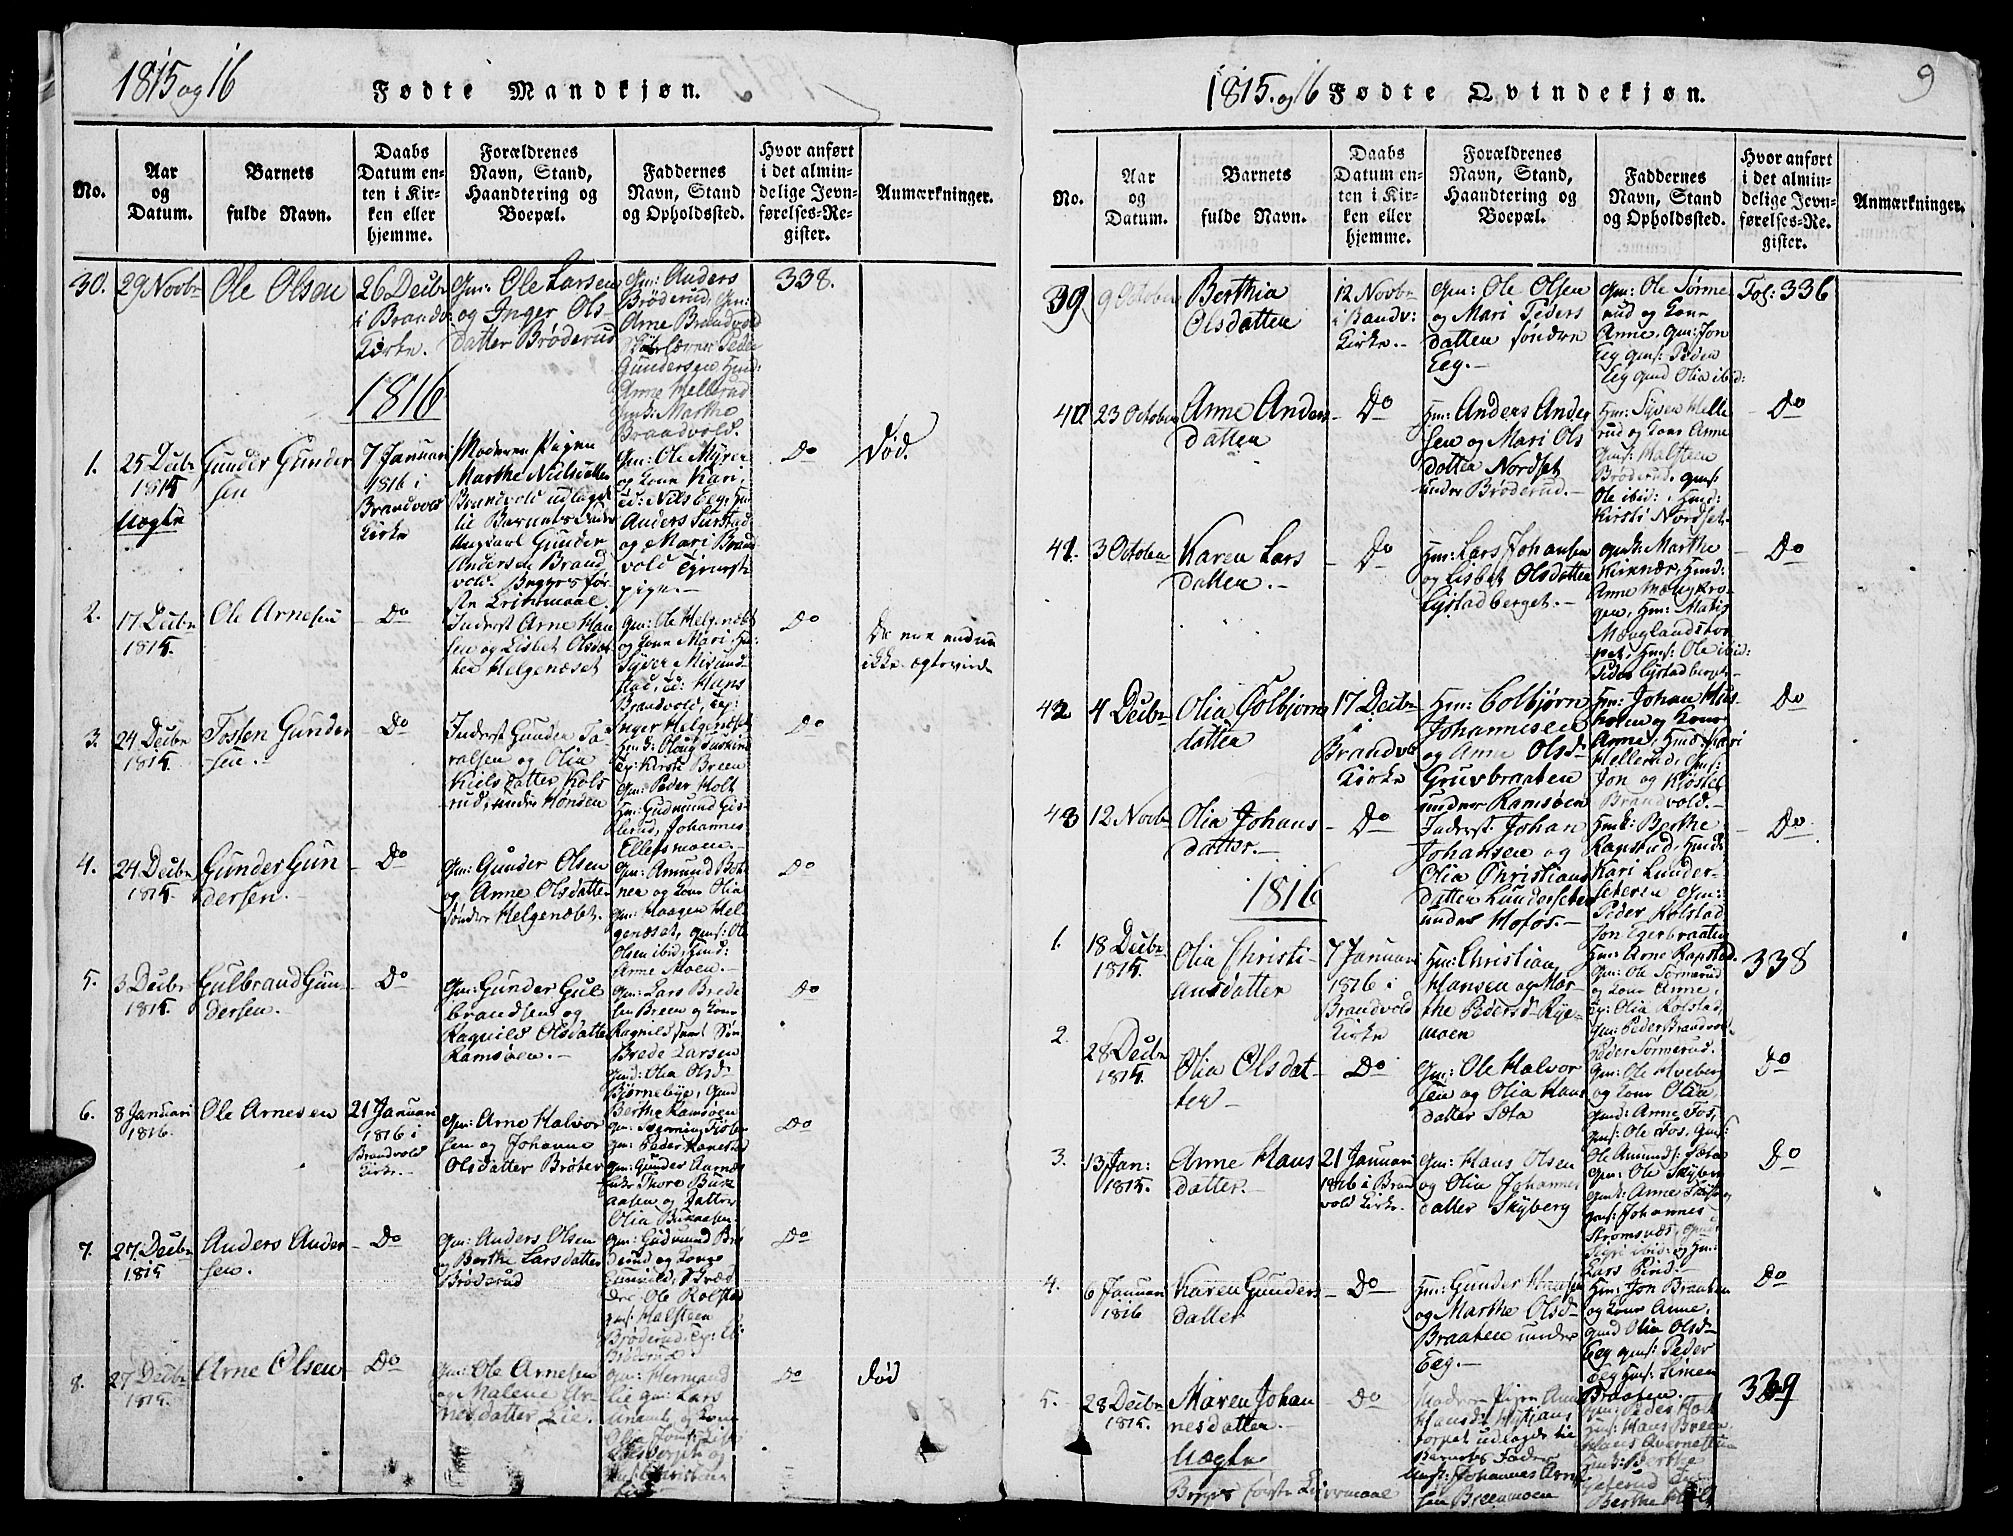 1815 og 16
Fødte Mandkjøn.
No.
Aar
og
Datum.
Barnets
fulde Navn.
Daabs
Datum en-
ten i Kir-
ken eller
hjemme.
Forældrenes
Navn, Stand,
Haandtering og
Boepæl.
Faddernes
Navn, Stand
og Opholdssted.
Hvor anført
i det almin-
delige Jevn-
førelses-Re-
gister.
Anmærkninger.
30.
29 Novbr
Ole Olsen
26 Decbr
i Brandv:
Kirke.
Gm: Ole Larsen
og Inger Ols-
datter Brøderud
Gm: Anders
Brøderud, Gm:
Arne Brandvold
Peder
Gundersen
Anne Hellerud
Marthe
Brandvold.
338.
1816
1.
25 Decbr
1815
Uægte
Gunder Gunder
sen
7 Januari
1816 i
Brandvold
Kirke
Moderen Pigen
Marthe Nielsdatter
Brandvold udlagde
til Barnets Fader
Ungkarl Gunder
Andersen Brand
vold. Begges før-
ste Leiermaal.
Gm: Ole Myrer
og Kone Kari,
Nils Eeg,
Anders
og Mari Brand
vold
pige.
Do
Død.
2.
17 Decbr
1815.
Ole Arnesen
Do
Inderst Arne Han
sen og Lisbet Olsdat
ter Helgenæset
Gm: Ole Helgenæset
og Kone Mari,
Syver
Hans
Brandvold,
Inger Helgenæset
Do
De ere endnu
ikke ægteviede
3.
24 Decbr
1815.
Tosten Gunder
sen.
Do
Inderst Gunder
og Olia
Kield datter Kols
rud, under Hønden
Kirsti Breen
Gm: Peder Holt
Hm: Gudmund Gis
lerud, Johannes
Ellersmoen.
Do
4.
24 Decbr
1815.
Gunder Gun
dersen.
Do
Gm: Gunder Olsen
og Anne Olsdatter
søndre Helgenæset.
Gm: Amund
og Kone Olia
Gm: Haagen Hel
genæset, Gms: Ole
Olsen ibid,
Anne Moen.
Do
5.
3 Decbr
1815.
Gulbrand Gun
dersen.
Do
Gm: Gunder Gul
brandsen og
Ragnild Olsdatter
Ramsøen.
Gm: Lars Brede
sen Breen og Kone
Ragnild samt Søn
Brede Larsen
Gmd: Olia Olsd
Bjørnebye, Gmd
Berthe Ramsøen
Do
6.
8 Januari
1816.
Ole Arnesen
21 Januari
1816 i
Brandvold
Kirke.
Gm: Arne Halvor
sen og Johanne
Olsdatter Brøter
Gm: Peder
Gm: Gunder Aarnæs
Enke Thore
og Datter
Olia
Do
7.
27 Decbr
1815
Anders Ander
sen.
Do
Gm: Anders Olsen
og Berthe Larsdatter
Brøderud
Gm: Gudmund Brø
derud og Kone
Gunild,
Ole Rolstad
Gms: Halsteen
Brøderud,
Brøderud.
Do
8.
27 Decbr
1815.
Arne Olsen
Do
Gm: Ole Arnesen
og Malene Ar-
nesdatter Lie.
Gm: Hermand
Lie Gm: Lars
og Kone
Olia
og
Christian
Do
Død
1815. og 16 Fødte Qvindekjøn.
9
No.
Aar
og
Datum.
Barnets
fulde Navn.
Daabs
Datum en-
ten i Kir-
ken eller
hjemme.
Forældrenes
Navn, Stand,
Haandtering og
Boepæl.
Faddernes
Navn, Stand
og Opholdssted.
Hvor anført
i det almin-
delige Jevn-
førelses-Re-
gister.
Anmærkninger.
39
9 October
Berthia
Olsdatter
12 Novbr
i Brandv:
Kirke.
Gm: Ole Olsen
og Mari Peders
datter søndre
Eeg.
Gm: Ole Sørme
rud og Kone
Anne, Gm: Jon
Eeg Gms: Peder
Eeg Gmd Olia ibid:
Fol: 336
40
23 October
Anne Anders
datter
Do
Hm: Anders Ander
sen og Mari Ols
datter Nordset
under Brøderud.
Hm: Syver Helle
rud og Kone Anne
Gms: Halsteen
Brøderud, Gms:
Ole ibid:, Hmd:
Kirsti Nordset.
Do
41.
3 October
Karen Lars
datter.
Do
Hm: Lars Johansen
og Lisbet Olsdatter
Eystadberget.
Gmk: Marthe
Kirknær, Hmd:
Anne
gen, Hm: Mathis
Mæaglandstor
pet, Hms: Ole ibid:
Peder Eystadberget
Do
42
4 Decbr
Olia Colbjørns
datter
17 Decbr
i
Brandvold
Kirke
Hm: Colbjørn
Johannesen
og Anne Olsd
Gruvbraaten
under Ramsøen
Hm: Johan
og Kone
Anne, Hmd: Kari
Hellerud, Gms:
Jon og
Brandvold.
Do
43
12 Novbr
Olia Johans
datter.
Do
Inderst: Johan
Johansen og
Olia Christians
datter Lundersæter
under Hofos.
Hmk: Berthe
Rapstad, Hmd:
Kari Lunder-
sæteren Gm:
Peder Rolstad
Jon Egerbraaten
Do
1816
1.
18 Decbr
1815.
Olia Christi-
ansdatter
7 Januari
1816 i
Brandvold
Kirke
Hm: Christian
Hansen og Mar
the Pedersd Rye-
moen
Hm: Arne Rapstad.
Gm: Ole Sørmerud
og Kone Anne,
Olia Rolstad,
Gm: Peder Brandvold
Peder Sørmerud.
338
2.
28 Decbr
1815.
Olia Olsdat-
ter
Do
Gm: Ole Halvor
sen og Olia Hans
datter Sæta
Gm: Ole Hveberg
og Kone Olia,
Gmd: Anne Fos,
Gms: Ole Fos. Gms:
Ole Amunds: Sæta
Do
3.
13 Jan:
1815.
Anne Hans
datter.
21 Januari
1816 i Brand
vold Kirke.
Gm: Hans Olsen
og Olia Johannes
datter Skyberg
Gm: Ole Skyberg
Gmk: Anne Skyberg
Gms: Johannes
Strømsnæs, Gmd:
Sigri ibid: og Hm:
Lars
Do
4.
6 Januari
1816
Karen Gunders
datter
Do
Hm: Gunder Hansen
og Marthe Olsd
Braaten under
Eeg.
Hm: Jon Braaten
og Kone Anne,
Gmd Olia Olsd
Eeg Gms: Peder
Eeg Hms: Simen
Braaten.
Do
5.
28 Decbr
1815.
Maren Johan
nesdatter.
Uægte
Begges første Leiermaal
Do
Moder Pigen Anne
Hansdt
torpet udlagde til
Barnets Fader
Ungk: Johannes Arne
sen Breenmoen
Gm: Peder Holt
Hms: Hans Breen
Hans
Gmk: Berthe
Gjeterud
Berthe Holt
339